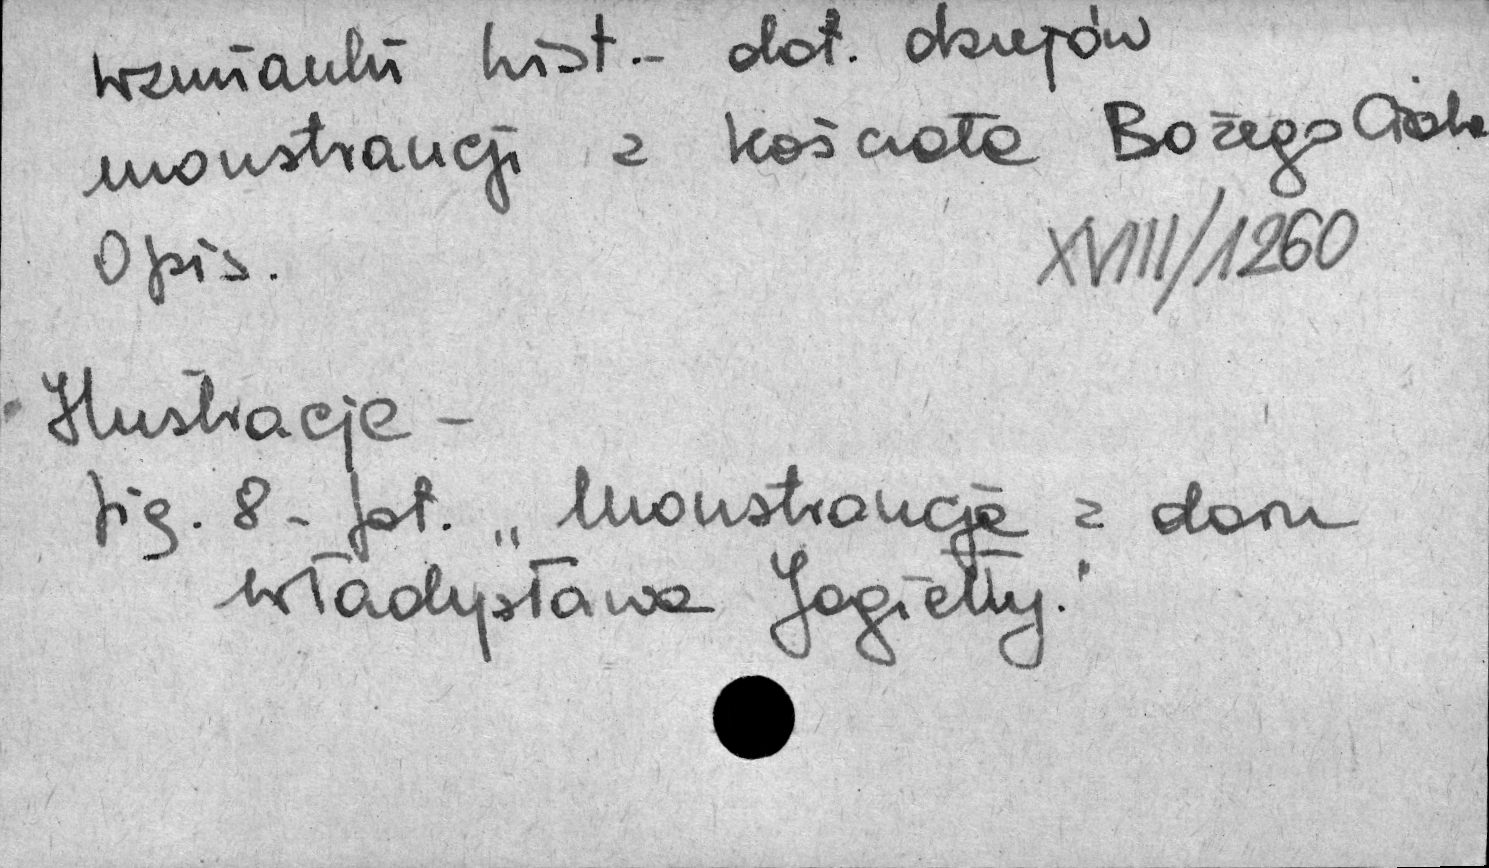 wzmianki hist. - dot. dziejów
monstrancji z kościoła Bożego Ciała
Opis.
XVIII/1260
Ilustracje -
fig. 8 - fot. „Monstrancja z daru
Władysława Jagiełły."